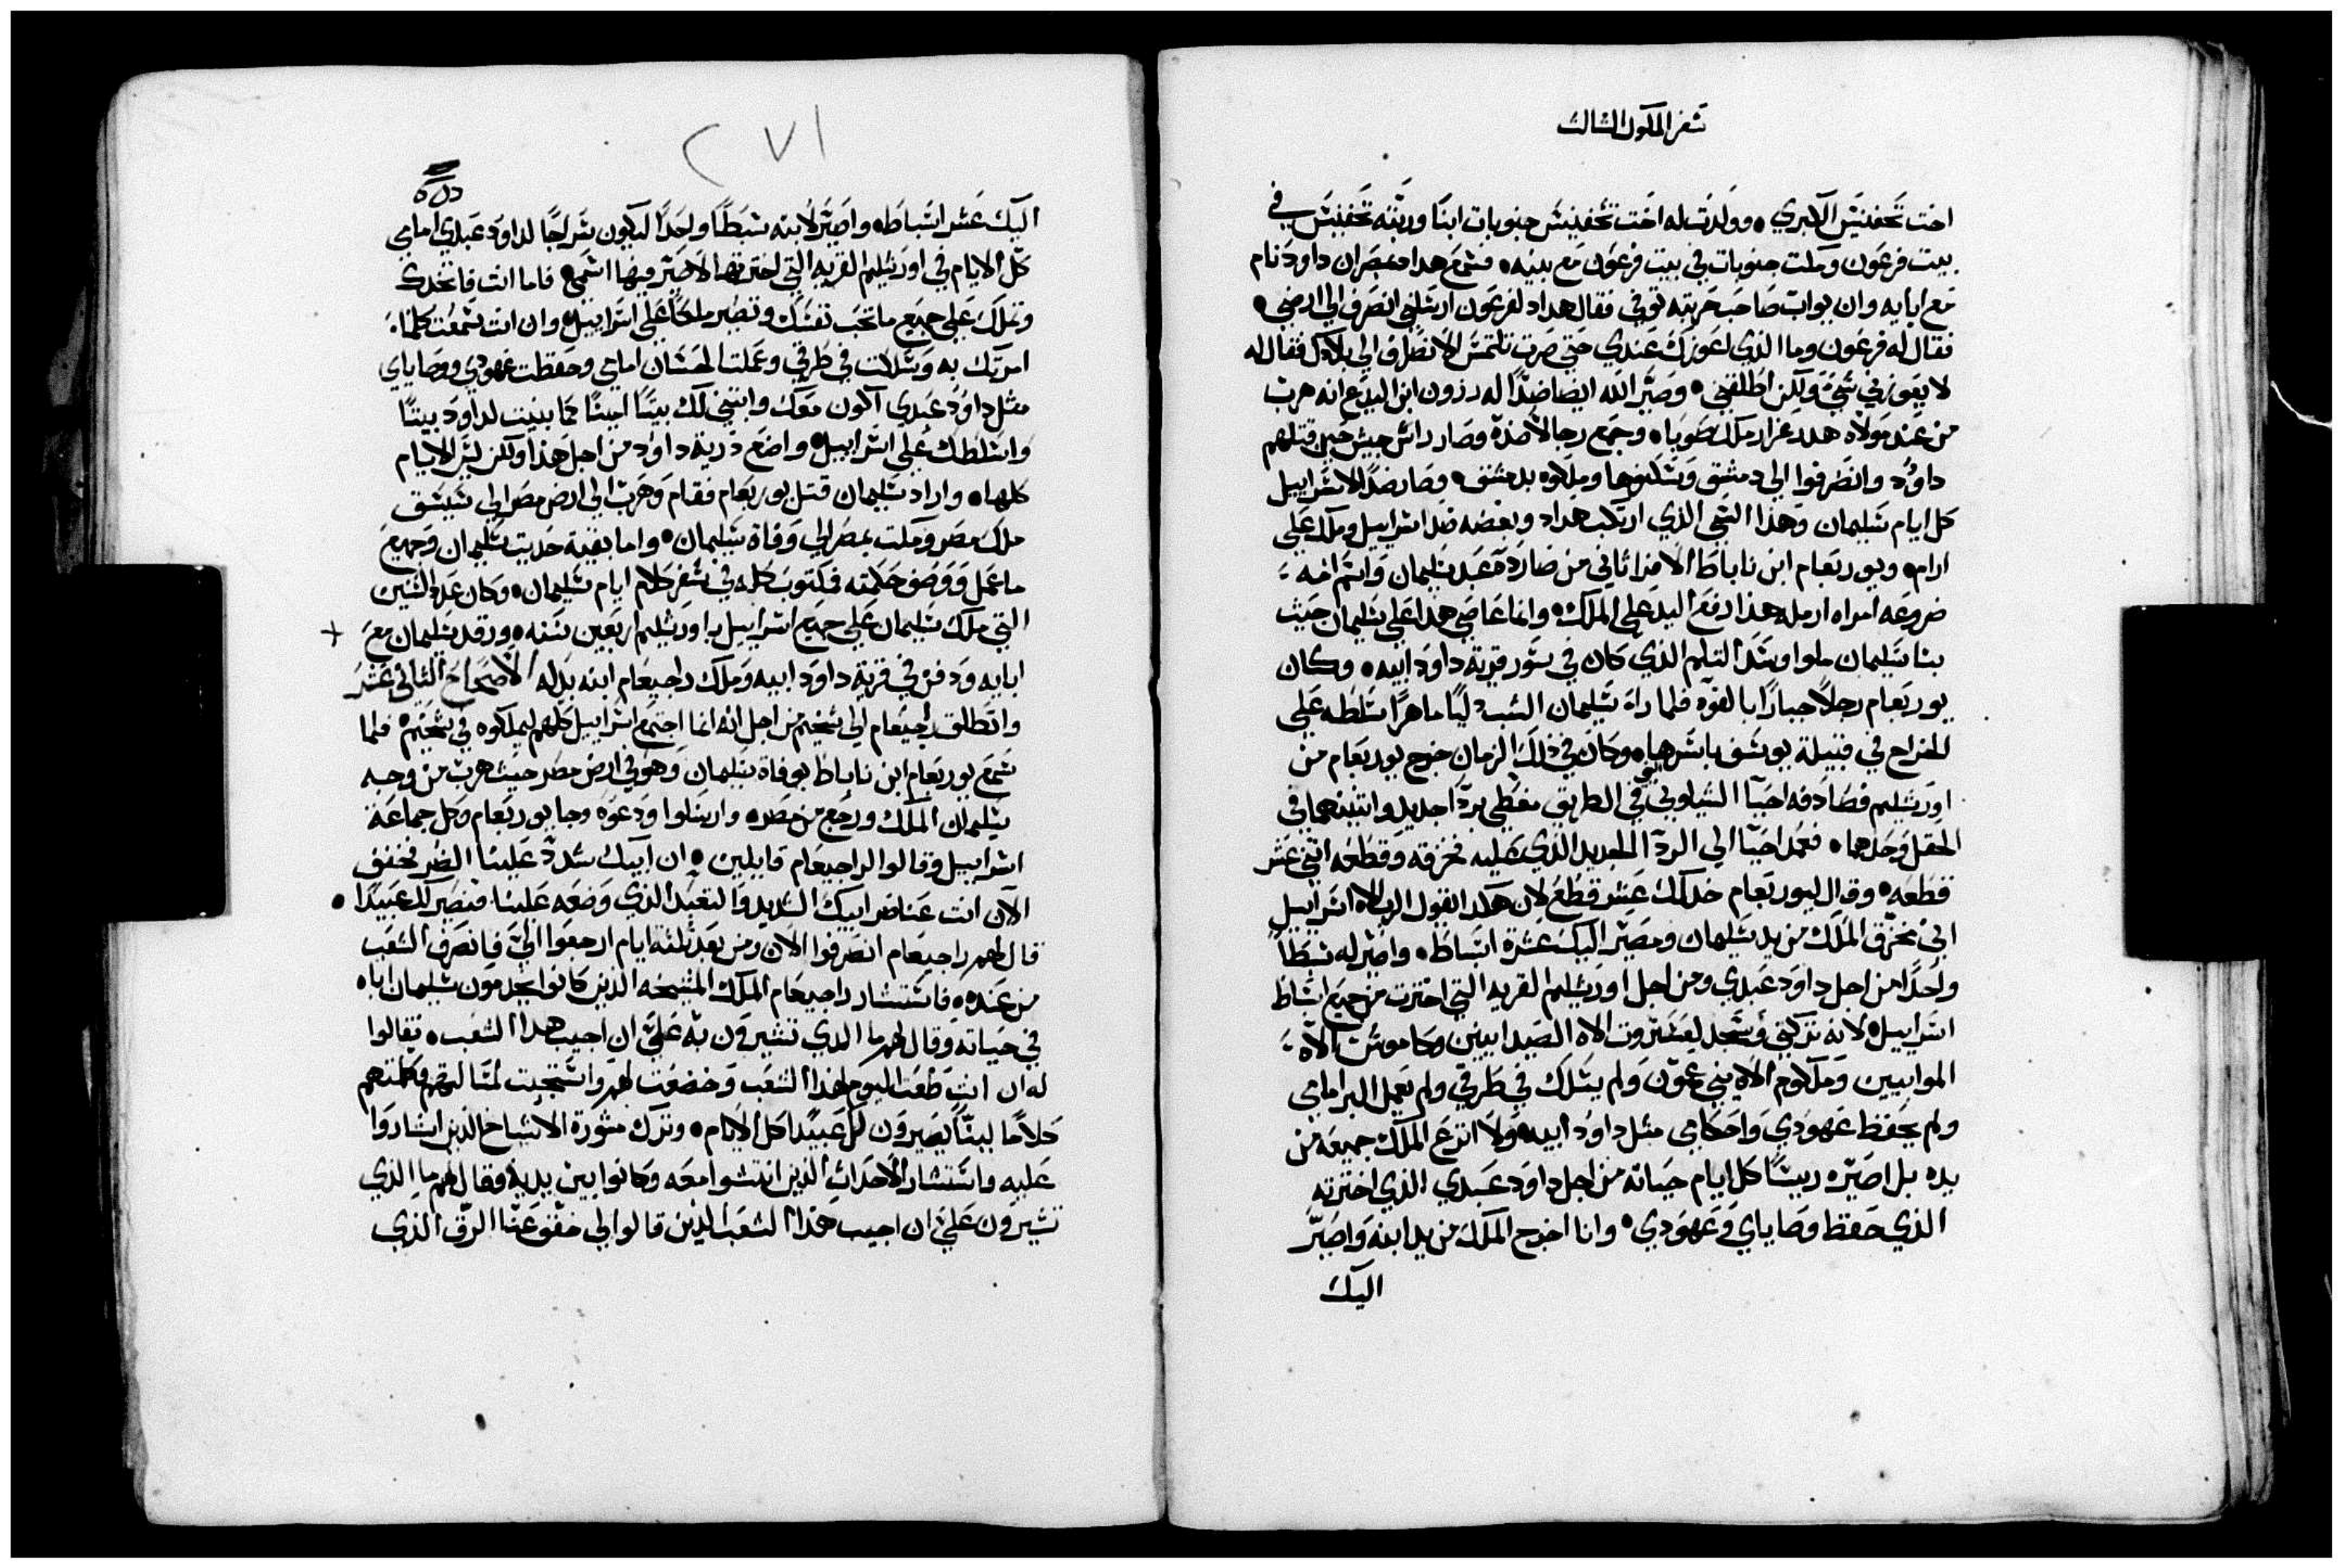 سفر الملوك الثالث
اخت تحفنيس الكبري • وولدت له اخت تحفنيس جنوبات ابنا وربته تحفنيس في
بيت فرعون ومكت جنوبات في بيت فرعون مع بنيه • فسمع هداد بمصر ان داود نام
مع ابايه وان يواب صاحب حربته توفي فقال هداد لفرعون ارسلني انصرف الي ارضي •
فقال له فرعون وما الذي اعوزك عندي حتي صرت تلتمس الانصراف الي بلادك فقال له
لا يعوزني شي ولكن اطلقني • وصير الله ايضا ضدا له رزون ابن اليدع انه هرب
من عند مولاه هدد عزار ملك صوبا • وجمع رجالا ضده وصار رائس جيش حين قتلهم
داود وانصرفوا الي دمشق وسكنوها وملكوه بدمشق • وصار ضدا لاسراييل
كل ايام سليمان وهذا الشي الذي ارتكب هداد وبغضه ضد اسراييل وملك علي
ارام • ويوربعام ابن ناباط الافراثاني من صاردة عبد سليمان واسم امه
ضروعه امراه ارمله هذا رفع اليد علي الملك • وانما عاصي هدا علي سليمان حيث
بنا سليمان ملوا وسد التلم الذي كان في سور قرية داود ابيه • وكان
يوربعام رجلا جبارا بالقوه فلما راه سليمان الشب دليا ماهرا سلطه علي
الخراج في قبيلة يوسف باسرها • وكان في ذلك الزمان خرج يوربعام من
اورشليم فصادفه احيا الشيلوني في الطريق مغطي بردا جديد واثنينهما في
الحقل وحدهما • فعمد احيا الي الردا الجديد الذي عليه فخرقه وقطعه اتني عشر
قطعه • وقال ليوربعام خدلك عشر قطع لان هكدا يقول الرب الاه اسراييل
اني مخرق الملك من يد سليمان ومصير اليك عشرة اسباط • واصير له سبطا
واحدا من اجل داود عبدي ومن اجل اورشليم القريه التي اخترت من جميع اسباط
اسراييل • لانه تركني وسجد لعستروت الاه الصيدانيين وكاموش الاه
الموابيين وملكوم الاه بني عمون ولم يسلك في طرقي ولم يعمل البر امامي
ولم يحفظ عهودي واحكامي مثل داود ابيه • ولا انزع الملك جميعه من
يده بل اصيره ريسا كل ايام حياته من اجل داود عبدي الذي اخترته
الذي حفظ وصاياي وعهودي • وانا اخرج الملك من يد ابنه واصير
اليك
٢٧١
اليك عشر اسباط • واصير لابنه سبطا واحدا ليكون سراجا لداود عبدي امامي
كل الايام في اورشليم القريه التي اخترتها لاصير فيها اسمي • فاما انت فاتخدك
وتملك علي جميع ما تحب نفسك وتصير ملكا علي اسراييل • وان انت سمعت كلما
امرتك به وسلكت في طرقي وعملت الحسنات امامي وحفظت عهودي ووصاياي
مثل داود عبدي اكون معك وابتني لك بيتا امينا كما بنيت لداود بيتا
واسلطك علي اسراييل • واضع درية داود من اجل هذا ولكن ليس الايام
كلها • واراد سليمان قتل يوربعام فقام وهرب الي ارض مصر الي شيشق
ملك مصر ومكت بمصر الي وفاة سليمان • واما بقية حديت سليمان وجميع
ما عمل ووصف حكمته فمكتوب كله في سفر كلام ايام سليمان • وكان عدد السنين
التي ملك سليمان علي جميع اسراييل باورشليم اربعين سنه • ورقد سليمان مع
ابايه ودفن في قرية داود ابيه وملك راحبعام ابنه بدله الاصحاح الثاني عشر
وانطلق رحبعام الي شخيم من اجل انه انما اجتمع اسراييل كلهم ليملكوه في شخيم • فلما
سمع يوربعام ابن ناباط بوفاة سليمان وهو في ارض مصر حيث هرب من وجه
سليمان الملك ورجع من مصر • وارسلوا ودعوه وجا يوربعام وكل جماعة
اسراييل وقالوا لراحبعام قايلين • ان ابيك شدد علينا الضر فخفف
الان انت عنا ضر ابيك الشديد والتعبد الذي وضعه علينا فنصير لك عبيدا •
قال لهم راحبعام انصرفوا الان ومن بعد تلته ايام ارجعوا الي فانصرف الشعب
من عنده • فاستشار راحبعام الملك المشيخه الذين كانوا يخدمون سليمان اباه
في حياته وقال لهم ما الدي تشيرون به علي ان اجيب هدا الشعب • فقالوا
له ان انت طعت اليوم لهذا الشعب وخضعت لهم واستجبت لمسالتهم وكلمتهم
كلاما لينا يصيرون لك عبيدا كل الايام • وترك مشورة الاشياخ الذين اشاروا
عليه واستشار الاحداث الذين انتشوا معه وكانوا بين يديه وقال لهم ما الذي
تشيرون علي ان اجيب هذا الشعب الذين قالوا لي خفف عنا الرق الذي